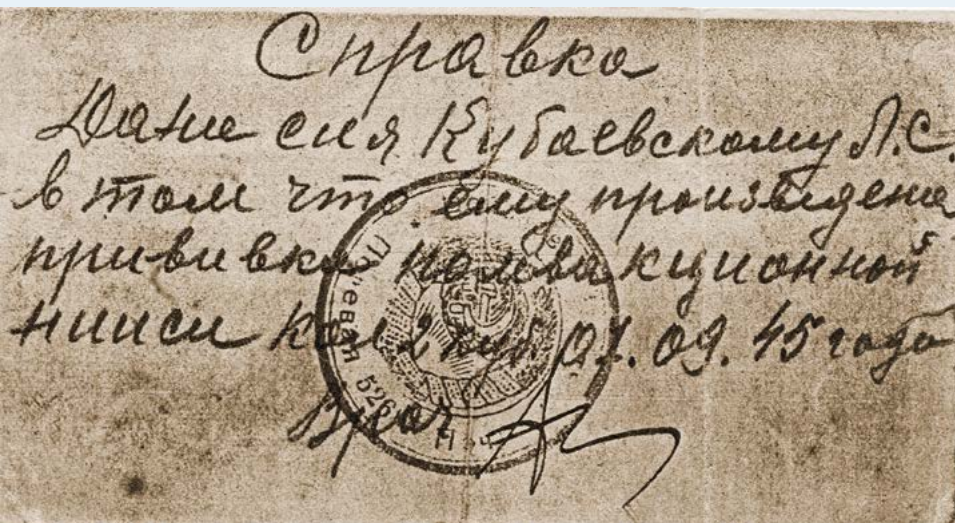 Справка
Дана сия Кубаевскому Л.С.
в том что ему произведена
прививка поливакционной
нииси кол 2 куб 01.09.45 года
Врач
Полевая 528